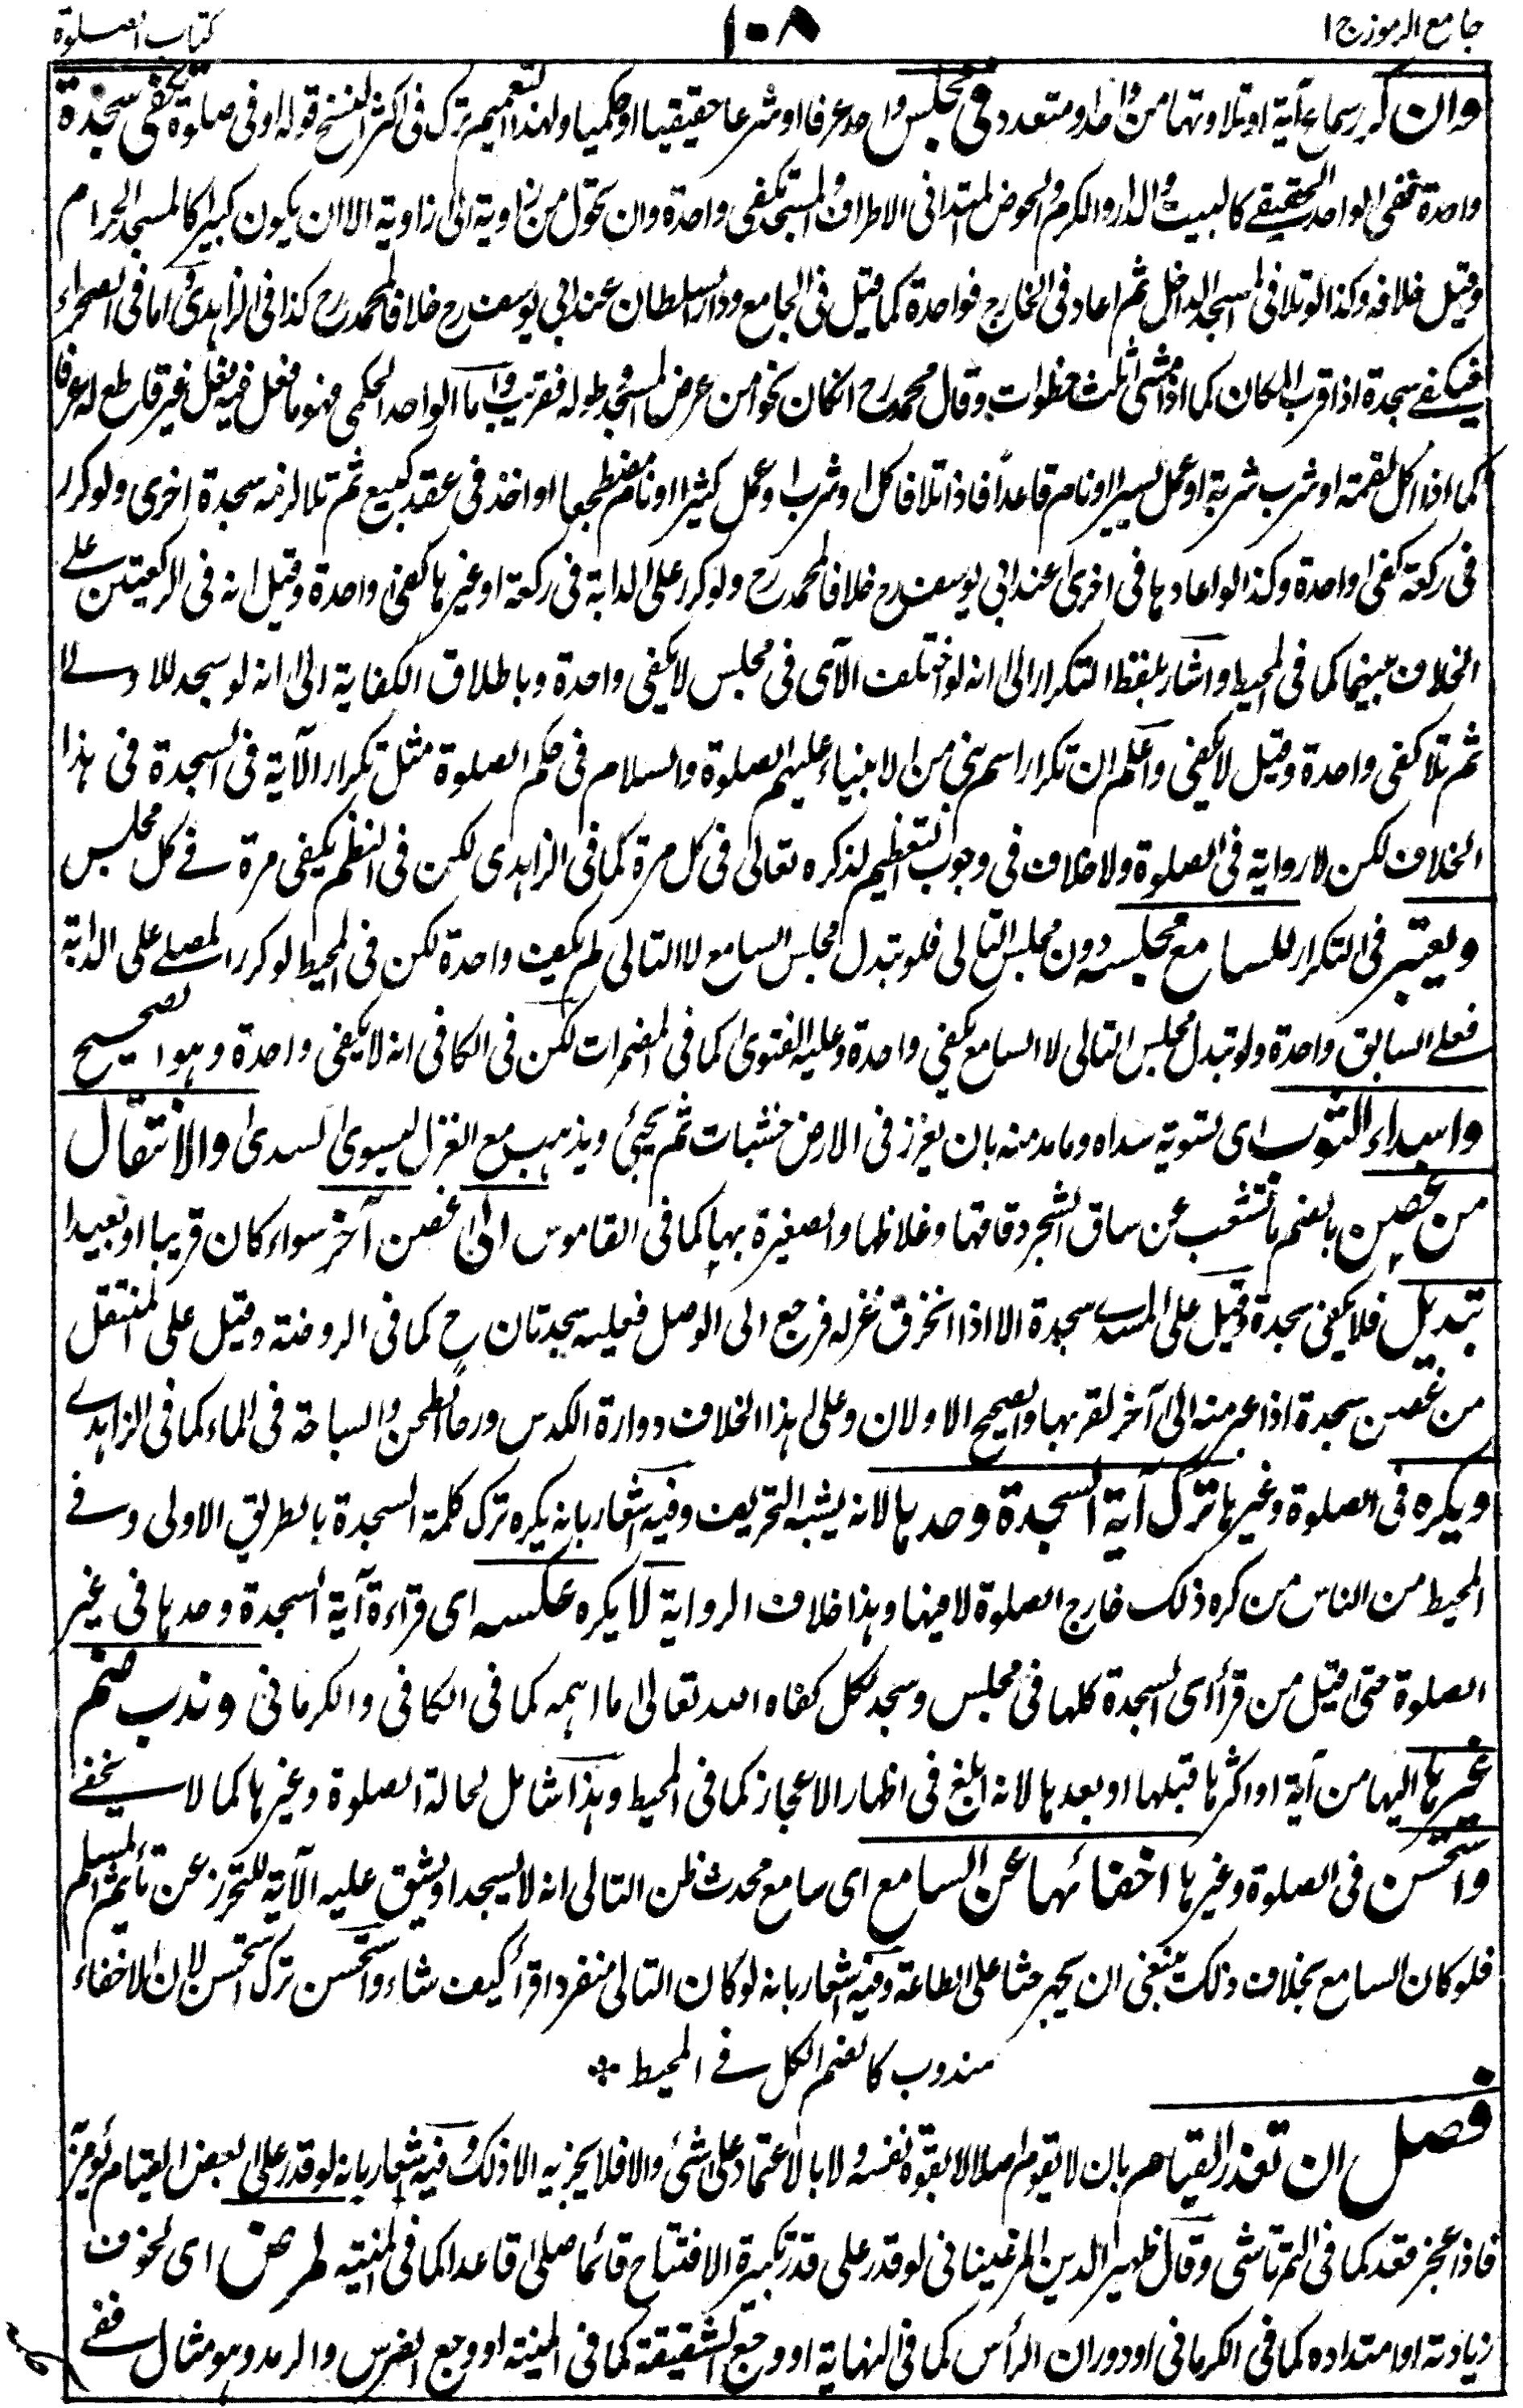 جامع الرموز ج ١
١٠٨
كتاب الصلوة
وان كرر سماع آية او تلاوتها من واحد او متعدد في مجلس واحد عرفا او شرعا حقيقيا او حكميا ولهذا التعميم ترك فى اكثر النسخ قوله او فى صلوة تكفى سجدة
واحدة ففى الواحد الحقيقے كالبيت والدار والكرم والحوض لمتدانى الاطراف والمسجد تكفى واحدة وان تحول من زاوية الى زاوية الا ان يكون كبيرا كالمسجد الحرام
وقيل خلافه وكذا لو تلا فى المسجد الداخل ثم اعاد فى الخارج فواحدة كما قيل فى الجامع ودار السلطان عند ابى يوسف رح خلافا لمحمد رح كذا فى الزاهدى واما فى الصحراء
فيكفے سجدة اذا قرب المكان كما اذا مشى ثلث خطوات وقال محمد رح ان كان نحوا من عرض المسجد وطوله فقريب واما الواحد الحكمى فهو ما فعل فيه فعل غير قاطع له عرفا
كما اذا اكل لقمة او شرب شربة او عمل يسيرا او نام قاعدا فاذا تلا فاكل او شرب او عمل كثيرا او نام مضطجعا او اخذ فى عقد كبيع ثم تلا لزمه سجدة اخرى ولو كرر
فى ركعة كفى واحدة وكذا لو اعادها فى اخرى عند ابى يوسف رح خلافا لمحمد رح ولو كرر على الدابة فى ركعة او غيرها كفى واحدة وقيل انه فى الركعتين علے
الخلاف بينهما كما فى المحيط واشار بلفظ التكرار الى انه لو اختلف الآى فى مجلس لا يكفى واحدة وباطلاق الكفاية الى انه لو سجد للاولے
ثم تلا كفى واحدة وقيل لا يكفى واعلم ان تكرار اسم نبى من الانبياء عليهم الصلوة والسلام فى حكم الصلوة مثل تكرار الآية فى السجدة فى هذا
الخلاف لكن لا رواية فى الصلوة ولا خلاف فى وجوب التعظيم لذكره تعالى فى كل مرة كما فى الزاهدى لكن فى النظم يكفى مرة فے كل مجلس
ويعتبر فى التكرار للسامع مجلسه دون مجلس التالى فلو تبدل مجلس السامع لا التالى لم يكف واحدة لكن فى المحيط لو كرر المصلے على الدابة
فعلے السابق واحدة ولو تبدل مجلس التالى لا السامع يكفى واحدة وعليه الفتوى كما فى المضمرات لكن فى الكافى انه لا يكفى واحدة وهو الصحيح
واسداء الثوب اى تسوية سداه وما مد منه بان يغرز فى الارض خشبات ثم يجيئ ويذهب مع الغزل ليسوى السدى والانتقال
من غصن بالضم ما تشعب عن ساق الشجر دقاقها وغلاظها والصغيرة بهاء كما فى القاموس الى غصن آخر سواء كان قريبا او بعيدا
تبديل فلا يكفى سجدة وقيل على المسدے سجدة الا اذا انخرق غزله فرجع الى الوصل فعليه سجدتان ح كما فى الروضة وقيل على المنتقل
من غصن سجدة اذا عبر منه الى آخر لقربهما والصحيح الاولان وعلى هذا الخلاف دوارة الكدس ورحا الطحن والسباحة فى الماء كما فى الزاهدے
ويكره فى الصلوة وغيرها ترك آية السجدة وحدها لانه يشبه التحريف وفيه اشعار بانه يكره ترك كلمة السجدة بالطريق الاولى وفے
المحيط من الناس من كره ذلك خارج الصلوة لا فيها وهذا خلاف الرواية لا يكره عكسه اى قراءة آية السجدة وحدها فى غير
الصلوة حتى قيل من قرأ آى السجدة كلها فى مجلس وسجد لكل كفاه الله تعالى ما اهمه كما فى الكافى والكرمانى وندب ضم
غيرها اليها من آية او اكثرها قبلها او بعدها لانه ابلغ فى اظهار الاعجاز كما فى المحيط وهذا شامل لحالة الصلوة وغيرها كما لا يخفے
واستحسن فى الصلوة وغيرها اخفائها عن السامع اى سامع محدث ظن التالى انه لا يسجد او يشق عليه الآية للتحرز عن تأثيم المسلم
فلو كان السامع بخلاف ذلك ينبغى ان يجهر حثا على الطاعة وفيه اشعار بانه لو كان التالى منفردا قرأ كيف شاء واستحسن ترك استحسن لان الاخفاء
مندوب كالضم الكل فے المحيط
فصل ان تعذر القيام بان لا يقوم اصلا لا بقوة نفسه ولا بالاعتماد على شئ والا فلا يجزيه الا ذلك وفيه اشعار بانه لو قدر على بعض القيام يؤمر
فاذا عجز قعد كما فى التمرتاشى وقال ظهير الدين المرغينانى لو قدر على قدر تكبيرة الافتتاح قائما صلى قاعدا كما فى المنية لمرض اى لخوف
زيادته او امتداده كما فى الكرمانى او دوران الرأس كما فى النهاية او وجع الشقيقة كما فى المنية او وجع الضرس والرمد وهو مثال ففے